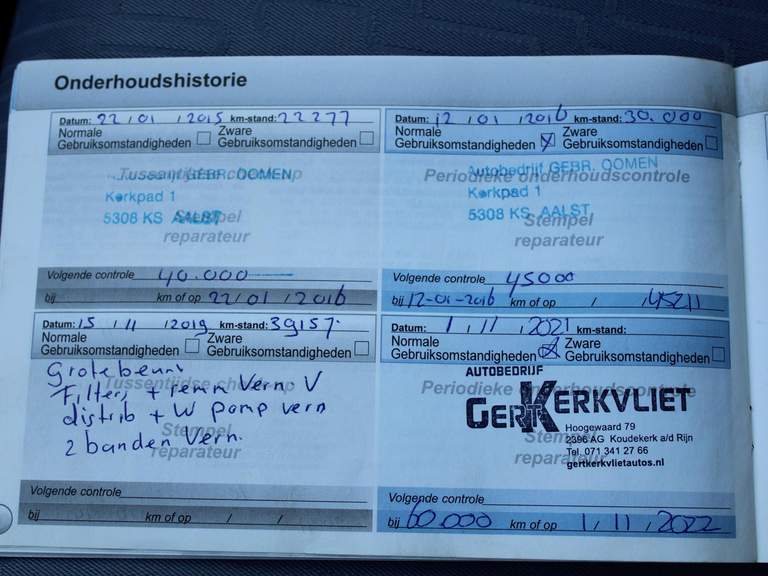 Onderhoudshistorie
Datum: 22 / 01 / 2015 km-stand: 22277
Normale Gebruiksomstandigheden Zware Gebruiksomstandigheden
Tussentijdse check-up
GEBR. OOMEN
Kerkpad 1
5308 KS AALST
Stempel
reparateur
Volgende controle 40.000
bij km of op 22 / 01 / 2016
Datum: 12 / 01 / 2016 km-stand: 30.000
Normale Gebruiksomstandigheden Zware Gebruiksomstandigheden
Periodieke onderhoudscontrole
Autobedrijf GEBR. OOMEN
Kerkpad 1
5308 KS AALST
Stempel
reparateur
Volgende controle 45000
bij 12-01-2016 km of op / / 45211
Datum: 15 / 11 / 2019 km-stand: 39157
Normale Gebruiksomstandigheden Zware Gebruiksomstandigheden
Tussentijdse check-up
Grote beurt
Filters + remm Vern V
distrib + W pomp vern
2 banden Vern.
Stempel
reparateur
Volgende controle
bij km of op / /
Datum: 1 / 11 / 2021 km-stand:
Normale Gebruiksomstandigheden Zware Gebruiksomstandigheden
Periodieke onderhoudscontrole
AUTOBEDRIJF
GERT KERKVLIET
Hoogewaard 79
2396 AG Koudekerk a/d Rijn
Tel. 071 341 27 66
gertkerkvlietautos.nl
Stempel
reparateur
Volgende controle
bij 60.000 km of op 1 / 11 / 2022